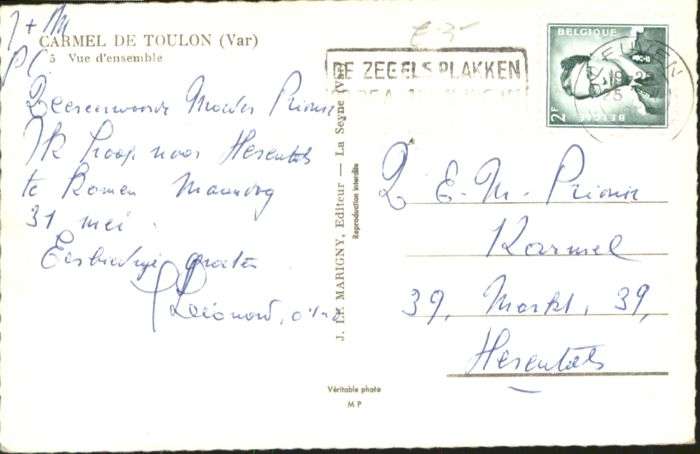 J + M
P C
CARMEL DE TOULON (Var)
5 Vue d'ensemble
Eerwaarde Moeder Priorin
Ik hoop naar Herentals
te komen Maandag
31 mei.
Eerbiedige groeten
Leonard, o.c.d.
J. LE MARIGNY, Editeur — La Seyne (Var)
Reproduction interdite
Véritable photo
M P
DE ZEGELS PLAKKEN
BELGIQUE
2F
BELGIE
LEUVEN
E. M. Priorin
Karmel
39, Markt, 39,
Herentals